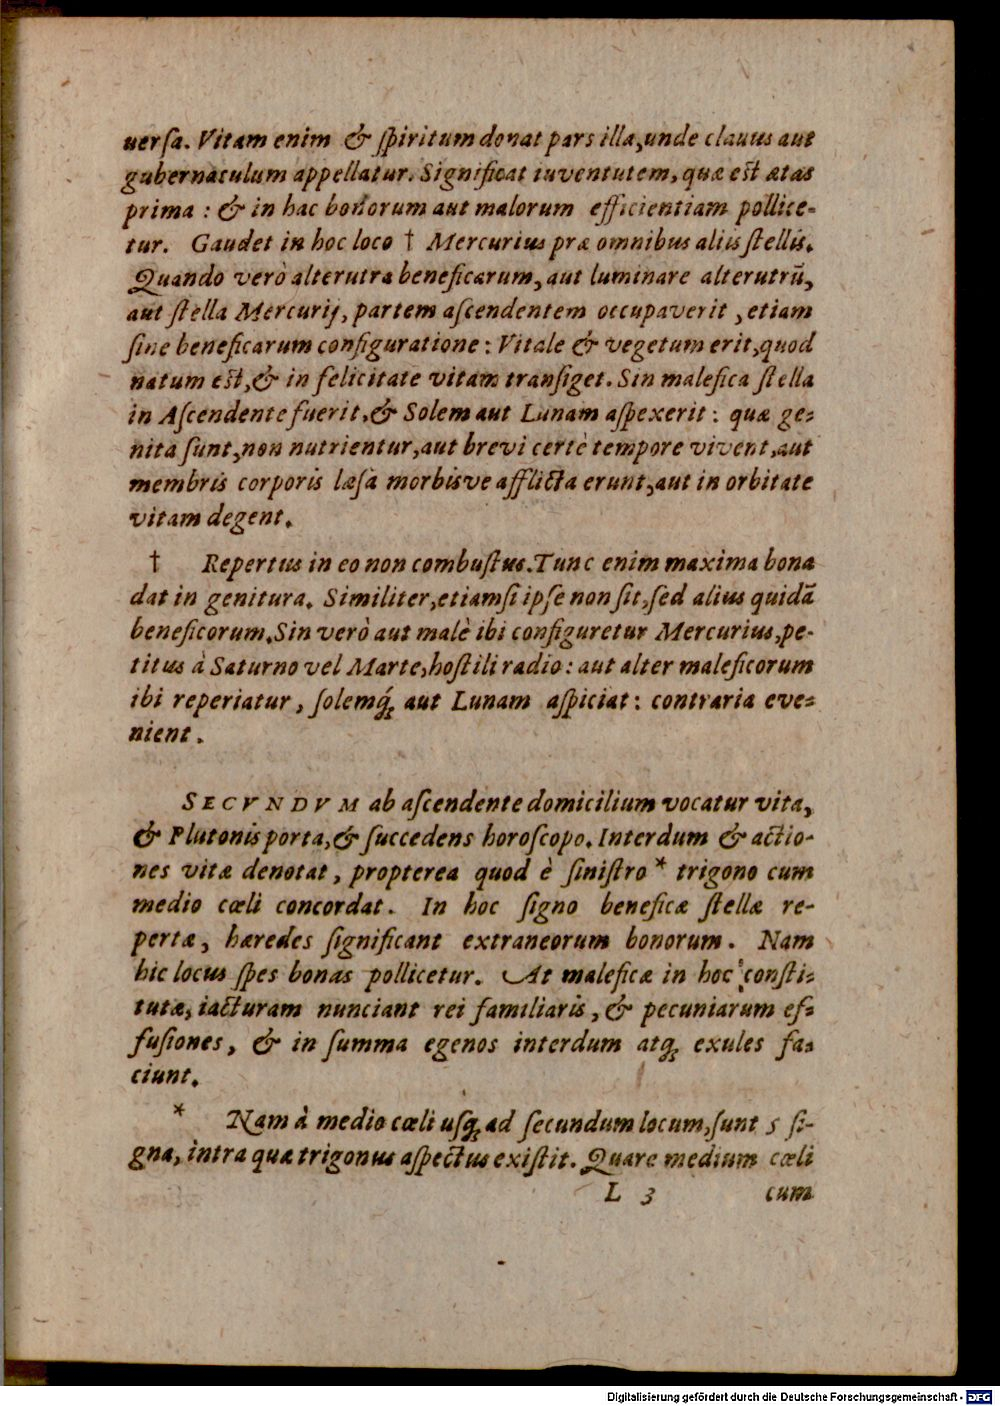 uerſa. Vitam enim & ſpiritum donat pars illa, unde clauus aut
gubernaculum appellatur. Significat iuventutem, quæ est ætas
prima : & in hac bonorum aut malorum efficientiam pollice-
tur. Gaudet in hoc loco † Mercurius præ omnibus aliis ſtellis.
Quando verò alterutra beneficarum, aut luminare alterutrũ,
aut ſtella Mercurij, partem aſcendentem occupaverit, etiam
ſine beneficarum configuratione: Vitale & vegetum erit, quod
natum est, & in felicitate vitam tranſiget. Sin malefica ſtella
in Aſcendente fuerit, & Solem aut Lunam aſpexerit: quæ ge-
nita ſunt, non nutrientur, aut brevi certè tempore vivent, aut
membris corporis læſa morbisve afflicta erunt, aut in orbitate
vitam degent.
† Repertus in eo non combuſtus. Tunc enim maxima bona
dat in genitura. Similiter, etiamſi ipſe non ſit, ſed alius quidã
beneficorum. Sin verò aut malè ibi configuretur Mercurius, pe-
titus à Saturno vel Marte, hoſtili radio: aut alter maleficorum
ibi reperiatur, ſolemq́; aut Lunam aſpiciat: contraria eve-
nient.
SECVNDVM ab aſcendente domicilium vocatur vita,
& Plutonis porta, & ſuccedens horoſcopo. Interdum & actio-
nes vitæ denotat, propterea quod è ſiniſtro * trigono cum
medio cœli concordat. In hoc ſigno beneficæ ſtellæ re-
pertæ, hæredes ſignificant extraneorum bonorum. Nam
hic locus ſpes bonas pollicetur. At maleficæ in hoc conſti-
tutæ, iacturam nunciant rei familiaris, & pecuniarum ef-
fuſiones, & in ſumma egenos interdum atq; exules fa-
ciunt.
* Nam à medio cœli uſq; ad ſecundum locum, ſunt 5 ſi-
gna, intra quæ trigonus aſpectus exiſtit. Quare medium cœli
L 3 cum
Digitalisierung gefördert durch die Deutsche Forschungsgemeinschaft - DFG